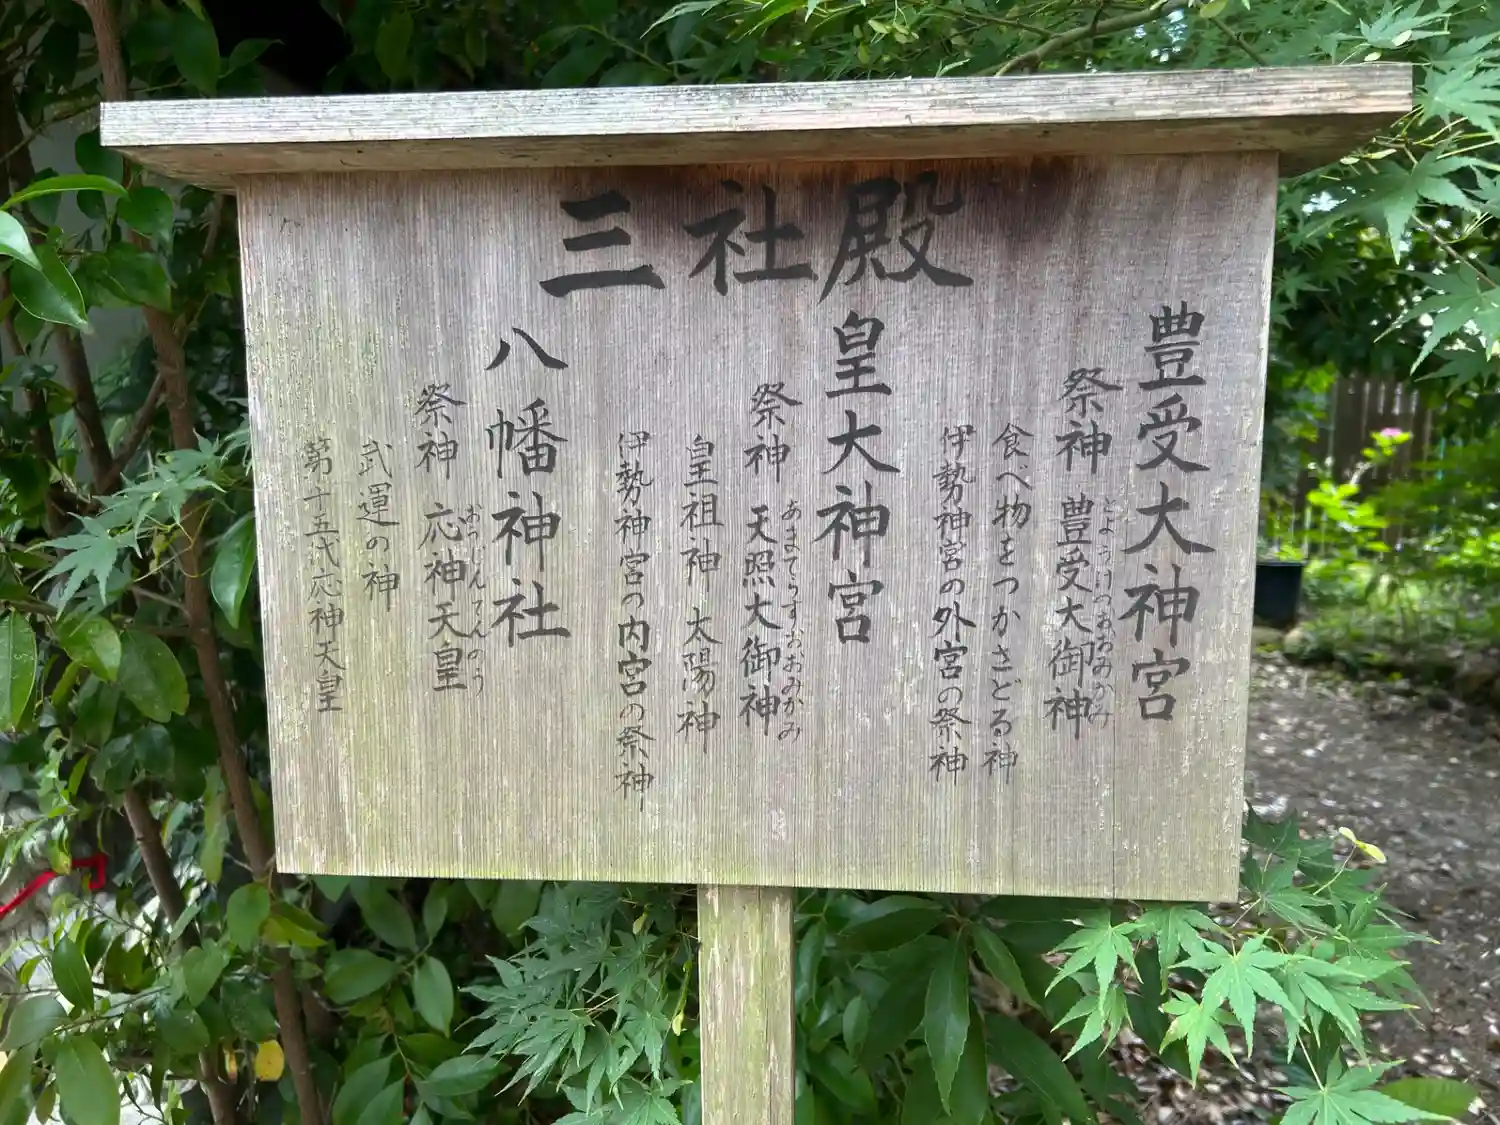 三社殿
豊受大神宮
祭神 豊受大御神
とようけのおおみかみ
食べ物をつかさどる神
伊勢神宮の外宮の祭神
皇大神宮
祭神 天照大御神
あまてらすおおみかみ
皇祖神 太陽神
伊勢神宮の内宮の祭神
八幡神社
祭神 応神天皇
おうじんてんのう
武運の神
第十五代応神天皇